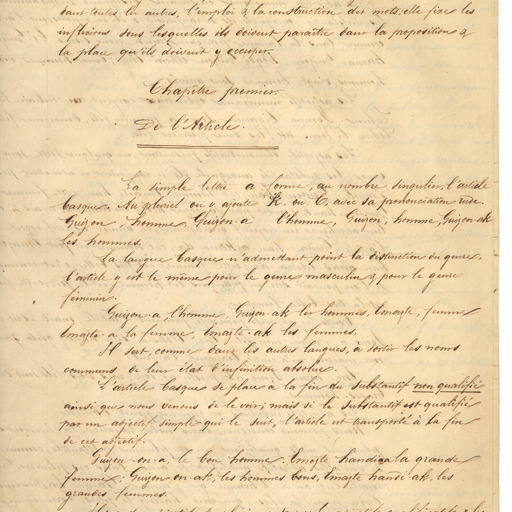 dans toutes les autres, l'emploi & la construction des mots; elle fixe les
inflexions sous lesquelles ils doivent paraître dans la proposition &
la place qu'ils doivent y occuper.
Chapitre premier.
De l'Article.
La simple lettre a forme, au nombre singulier, l'article
basque. Au pluriel on y ajoute K. ou C. avec sa prononciation rude.
Guizon, homme, Guizon-a l'homme, Guizon, homme, Guizon-ak
les hommes.
La langue basque n'admettant point la distinction du genre,
l'article y est le même pour le genre masculin & pour le genre
féminin.
Guizon-a l'homme, Guizon-ak les hommes, Emazte, femme
Emazte-a la femme, Emazte-ak les femmes.
Il sert, comme dans les autres langues, à sortir les noms
communs de leur état d'infinition absolue.
L'article basque se place à la fin du substantif non qualifié
ainsi que nous venons de le voir; mais si le substantif est qualifié
par un adjectif simple qui le suit, l'article est transporté à la fin
de cet adjectif.
Guizon on-a, le bon homme, Emazte handi-a la grande
femme; Guizon on-ak, les hommes bons, Emazte handi-ak, les
grandes femmes.